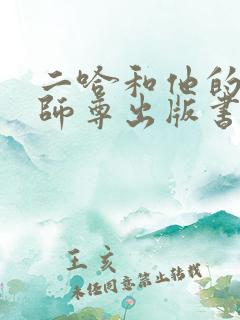 二哈和他的
师尊出版书
王亥
未经同意禁止转载